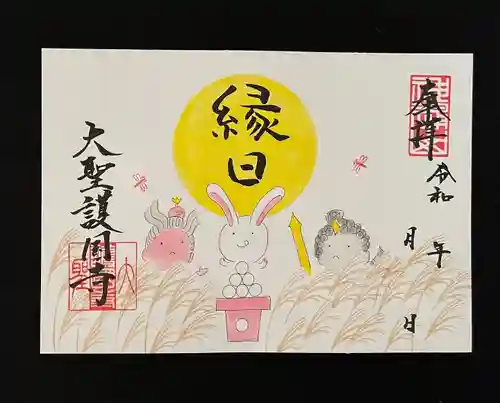 奉拝
令和
年
月
日
縁日
大聖護国寺